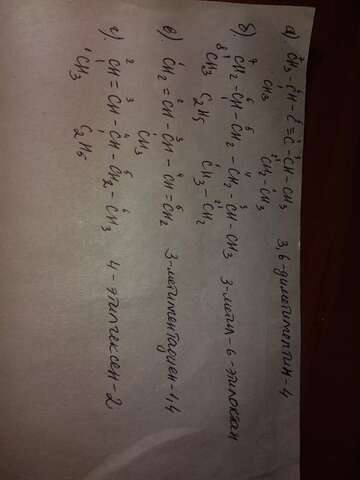 а) CH3 - CH - C ≡ C - CH - CH3 3,6-диметилгептин-4
CH3 CH2-CH3
7 6 5 4 3
б) CH2 - CH - CH2 - CH2 - CH - CH3 3-метил-6-этилоктан
8 1 2
CH3 C2H5 CH3 - CH2
1 2 3 4 5
в) CH2 = CH - CH - CH = CH2 3-метилпентадиен-1,4
CH3
2 3 4 5 6
г) CH = CH - CH - CH2 - CH3 4-этилгексен-2
1
CH3 C2H5